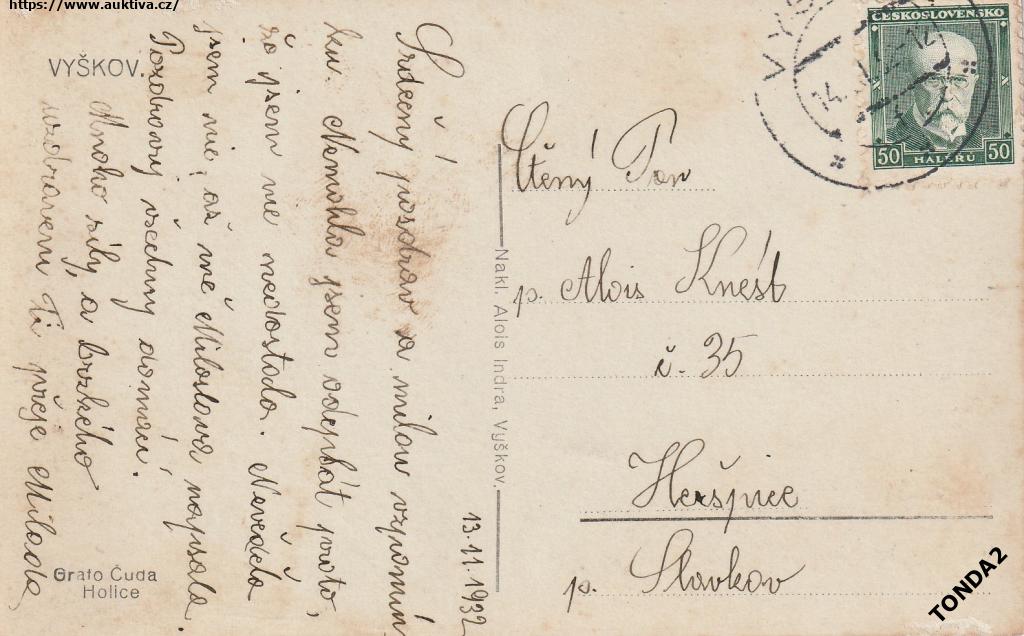 https://www.auktiva.cz/
VYŠKOV.
Srdečný pozdrav a milou vzpomín
ku. Nemohla jsem odepsát proto,
že jsem me nedostala. Nevěděla
jsem nic, až mě Miloslava napsala.
Pozdravuj všechny domácí.
Mnoho síly, a brzkého
uzdravení Ti přeje Milada,
13.11.1932
Grafo Čuda
Holice
Nakl. Alois Indra, Vyškov.
Ctěný Pan
p. Alois Knést
č. 35
Heršpice
p. Slavkov
ČESKOSLOVENSKO
50 HALÉŘŮ 50
14.
TONDA2